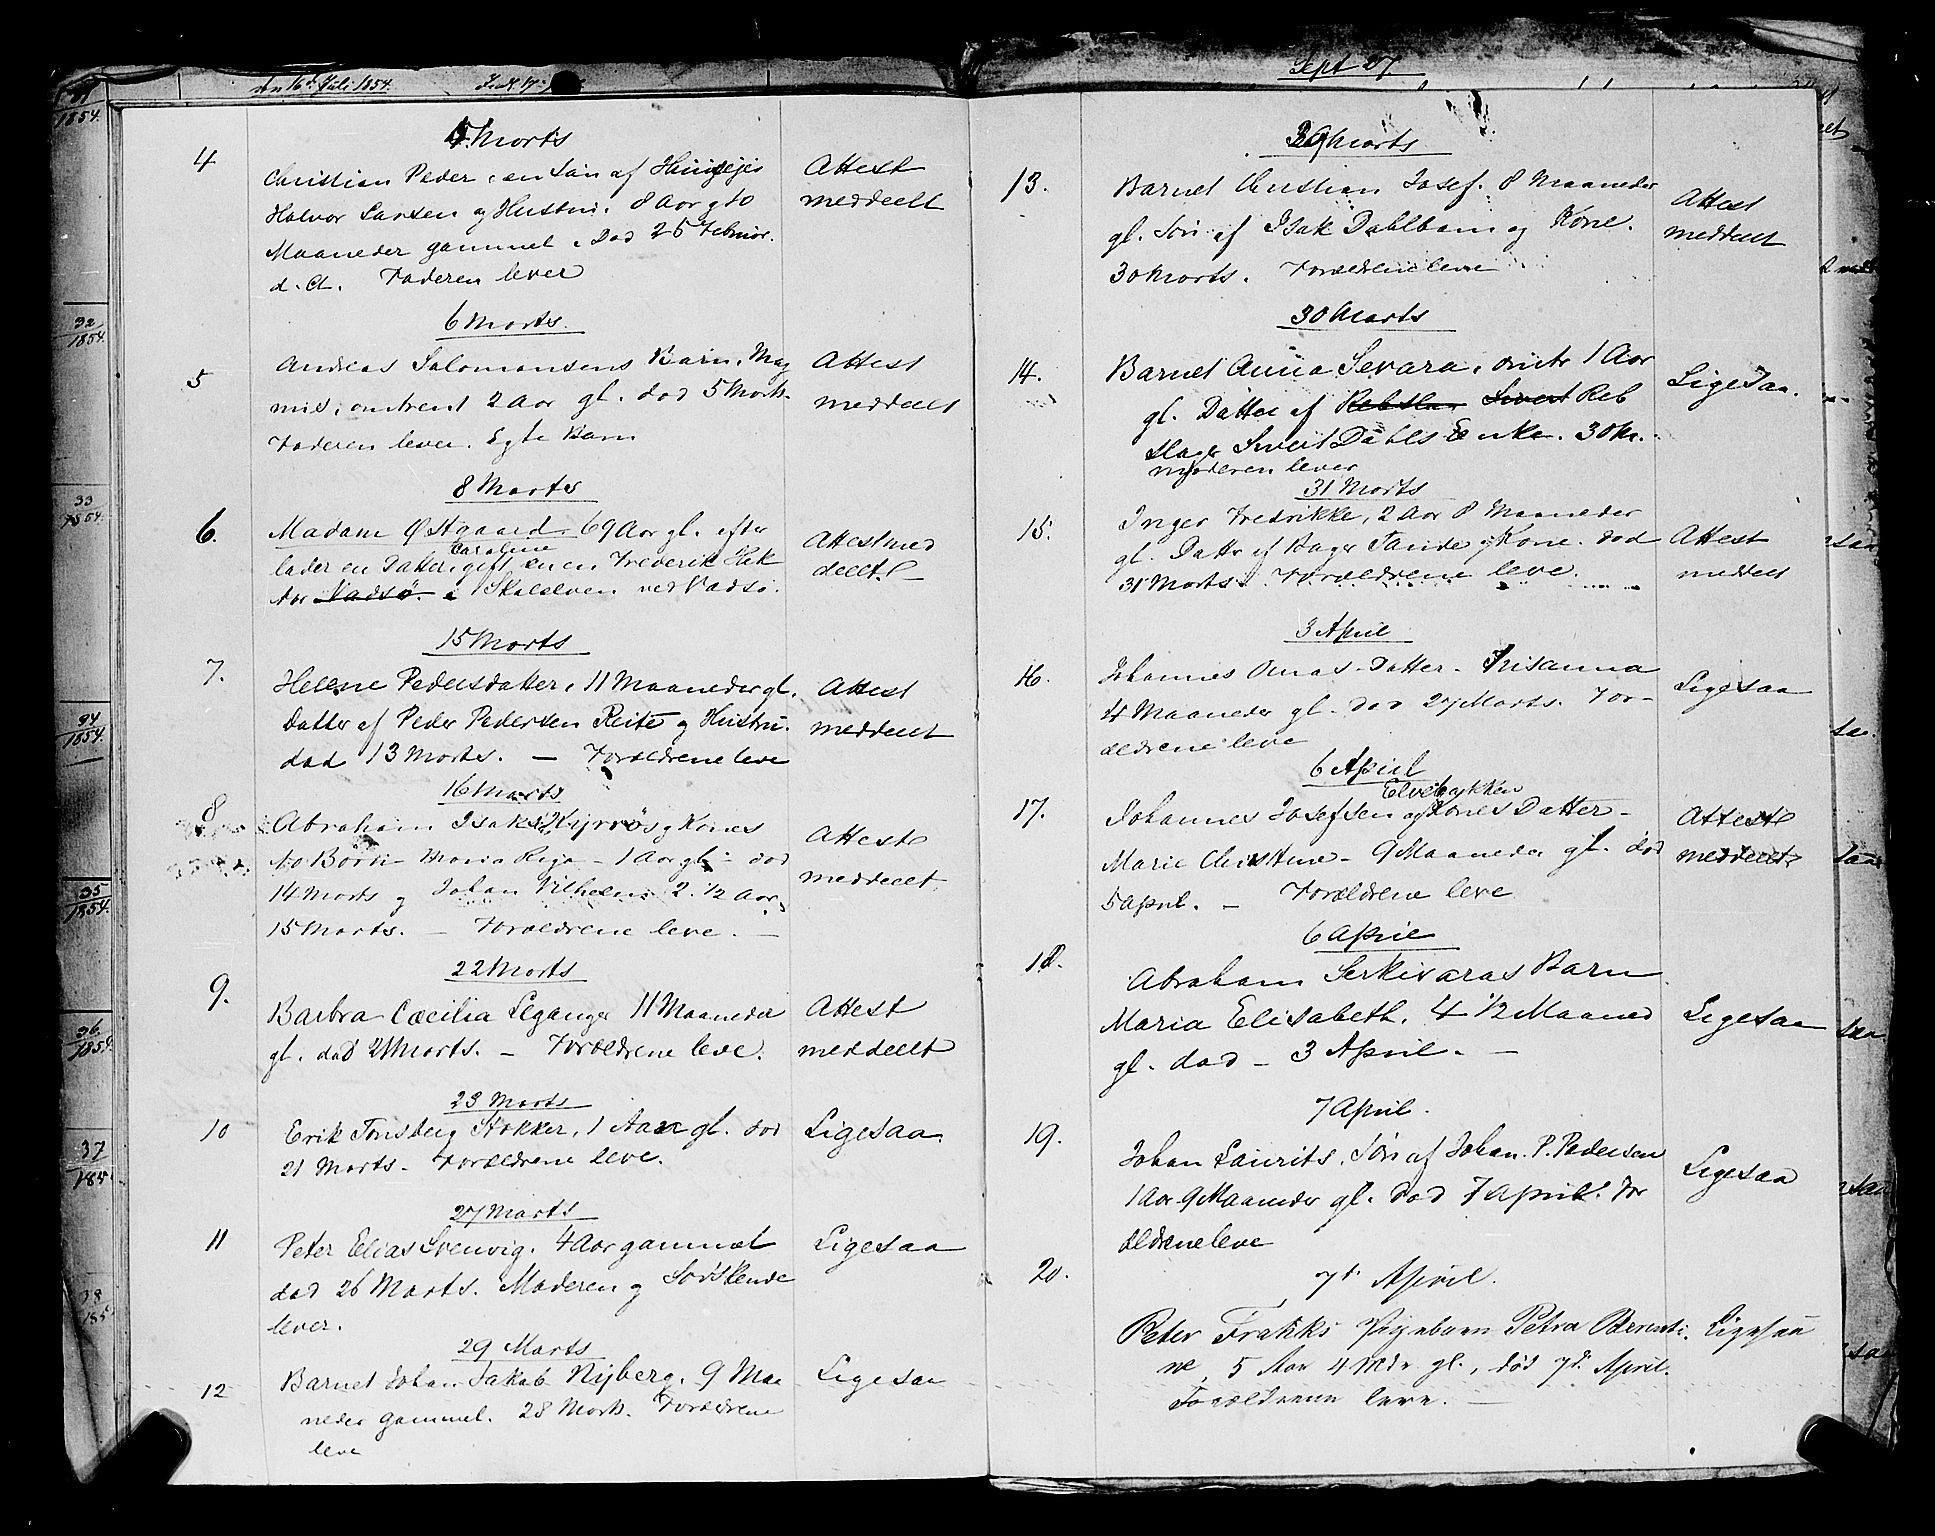 den 16de Juli 1854.
4 Marts
4
Christian Peder, en Søn af Huusejer
Halvor Larsen og Hustru. 8 Aar gto
Maaneder gammel. Død 25 Februar.
d. A. Faderen lever
Attest
meddeelt
6 Marts.
5
Andreas Salomonsens Barn, Mag
nus, omtrent 2 Aar gl. død 5 Marts.
Faderen lever. Egte Barn
Attest
meddeelt
8 Marts
6.
Madam Østgaard, 69 Aar gl. efter
Caroline
lader en Datter, gift en en Frederik Hak
for Vadsø. i Skalelven ved Vadsø.
Attest med
deelt
15 Marts
7.
Helene Pedersdatter, 11 Maaneder gl.
Datter af Peder Pedersen Reite og Hustru.
død 13 Marts. — Forældrene leve
Attest
meddeelt
16 Marts
8
Abraham Isaks Kyrrøs og Kones
to Børn - Maria Rija - 1 Aar gl - død
14 Marts og Johan Vilhelm 2 1/2 Aar,
15 Marts. — Forældrene leve. —
Attest
meddeelt.
22 Marts
9.
Barbra Cæcilia Leganger 11 Maaneder
gl. død 21 Marts. — Forældrene leve.
Attest
meddeelt
23 Marts
10
Erik Tonsberg Stokker, 1 Aar gl. død
21 Marts - Forældrene leve.
Ligesaa
27 Marts
11
Peter Elias Svenvig. 4 Aar gammel
død 26 Marts. Moderen og Sødskende
lever.
Ligesaa
29 Marts
12
Barnet Johan Jakob Nyberg. 9 Maa
neder gammel. 28 Marts. Forældrene
leve
Ligesaa
Sept 27
29 Marts
13.
Barnet Christian Josef. 8 Maaneder
gl. Søn af Isak Dahlbom og Kone.
30 Marts. Forældrene leve
Attest
meddeelt
30 Marts
14.
Barnet Anna Sevara, omtr 1 Aar
gl. Datter af Rebsla Sivert Reb
slager Sivert Dahls Enke. 30 M.
moderen lever
Ligesaa.
31 Marts
15.
Inger Fredrikke, 2 Aar 8 Maaneder
gl. Datter af Bager Sande og Kone. død
31 Marts. Forældrene leve.
Attest
meddeelt
3 April
16.
Johannes Omas Datter - Susanna
4 Maaneder gl. død 27 Marts. For-
ældrene leve
Ligesaa
6 April
Elvebakken
17.
Johannes Josefsen og Kones Datter -
Marie Christine - 9 Maaneder gl. død
5 April. — Forældrene leve
Attest
meddeelt
6 April
18.
Abraham Serkivaras Barn
Maria Elisabeth. 4 1/2 Maaned
gl. død - 3 April. —
Ligesaa
7 April.
19.
Johan Laurits, Søn af Johan P. Pedersen
1 Aar 9 Maaneder gl. død 7 April. For
ældrene leve
Ligesaa
20.
7d. April.
Peter Frakks Pigebarn Petra Berenti-
ne, 5 Aar 4 Mdr. gl., død 7d. April.
Forældrene leve. —
Ligesaa
32
1854.
33
1854.
34
1854.
35
1854.
36
1854
37
185
38
185